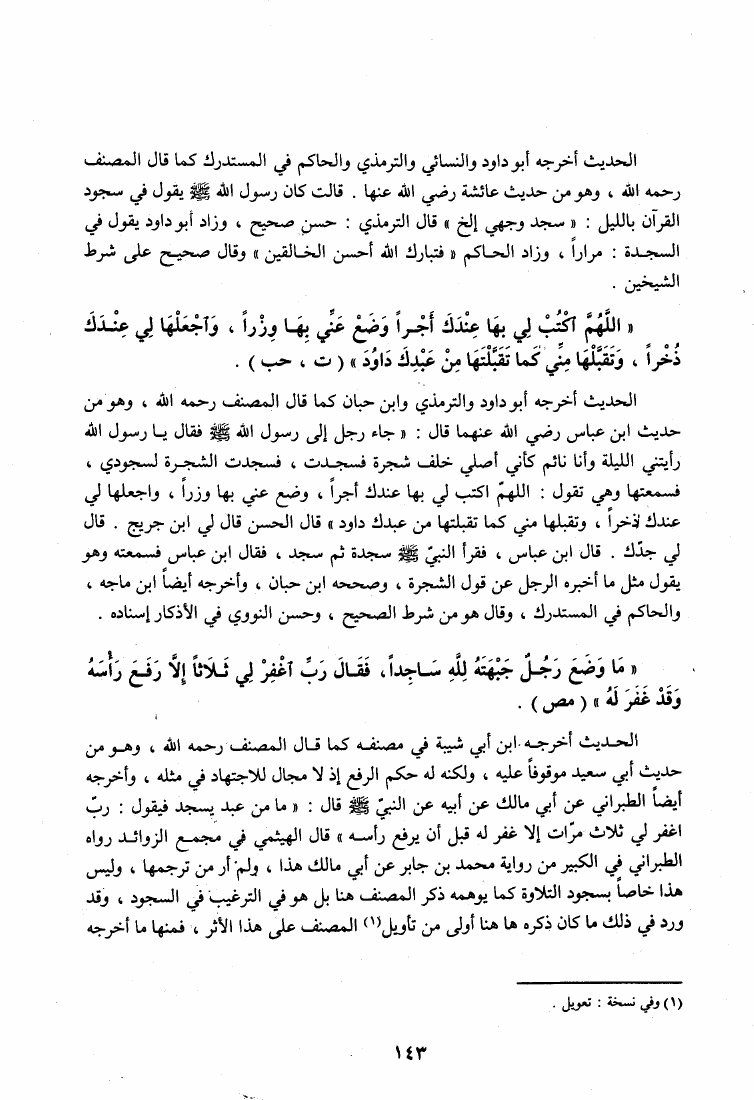 الحديث أخرجه أبو داود والنسائي والترمذي والحاكم في المستدرك كما قال المصنف
رحمه الله ، وهو من حديث عائشة رضي الله عنها . قالت كان رسول الله ﷺ يقول في سجود
القرآن بالليل : « سجد وجهي إلخ » قال الترمذي : حسن صحيح ، وزاد أبو داود يقول في
السجدة : مراراً ، وزاد الحاكم « فتبارك الله أحسن الخالقين » وقال صحيح على شرط
الشيخين .
« اللَّهُمَّ اكْتُبْ لِي بِهَا عِنْدَكَ أَجْراً وَضَعْ عَنِّي بِهَا وِزْراً ، وَاجْعَلْهَا لِي عِنْدَكَ
ذُخْراً ، وَتَقَبَّلْهَا مِنِّي كَما تَقَبَّلْتَهَا مِنْ عَبْدِكَ دَاوُدَ » ( ت ، حب ) .
الحديث أخرجه أبو داود والترمذي وابن حبان كما قال المصنف رحمه الله ، وهو من
حديث ابن عباس رضي الله عنهما قال : « جاء رجل إلى رسول الله ﷺ فقال يا رسول الله
رأيتني الليلة وأنا نائم كأني أصلي خلف شجرة فسجدت ، فسجدت الشجرة لسجودي ،
فسمعتها وهي تقول : اللهمّ اكتب لي بها عندك أجراً ، وضع عني بها وزراً ، واجعلها لي
عندك ذخراً ، وتقبلها مني كما تقبلتها من عبدك داود » قال الحسن قال لي ابن جريج . قال
لي جدّك . قال ابن عباس ، فقرأ النبيّ ﷺ سجدة ثم سجد ، فقال ابن عباس فسمعته وهو
يقول مثل ما أخبره الرجل عن قول الشجرة ، وصححه ابن حبان ، وأخرجه أيضاً ابن ماجه ،
والحاكم في المستدرك ، وقال هو من شرط الصحيح ، وحسن النووي في الأذكار إسناده .
« مَا وَضَعَ رَجُلٌ جَبْهَتَهُ لِلَّهِ سَاجِداً، فَقَالَ رَبِّ اغْفِرْ لِي ثَلَاثاً إِلَّا رَفَعَ رَأْسَهُ
وَقَدْ غَفَرَ لَهُ » ( مص ) .
الحديث أخرجه ابن أبي شيبة في مصنفه كما قال المصنف رحمه الله ، وهو من
حديث أبي سعيد موقوفاً عليه ، ولكنه له حكم الرفع إذ لا مجال للاجتهاد في مثله ، وأخرجه
أيضاً الطبراني عن أبي مالك عن أبيه عن النبيّ ﷺ قال : « ما من عبد يسجد فيقول : ربّ
اغفر لي ثلاث مرّات إلا غفر له قبل أن يرفع رأسه » قال الهيثمي في مجمع الزوائد رواه
الطبراني في الكبير من رواية محمد بن جابر عن أبي مالك هذا ، ولم أر من ترجمها ، وليس
هذا خاصاً بسجود التلاوة كما يوهمه ذكر المصنف هنا بل هو في الترغيب في السجود ، وقد
ورد في ذلك ما كان ذكره ها هنا أولى من تأويل(١) المصنف على هذا الأثر ، فمنها ما أخرجه
(١) وفي نسخة : تعويل .
١٤٣